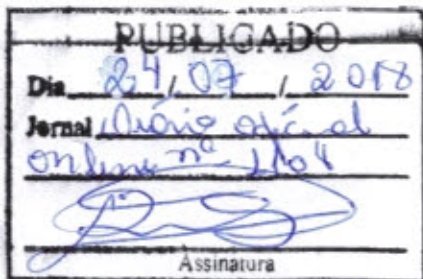 PUBLICADO
Dia 24/07/2018
Jornal Diário oficial
online nº
Assinatura